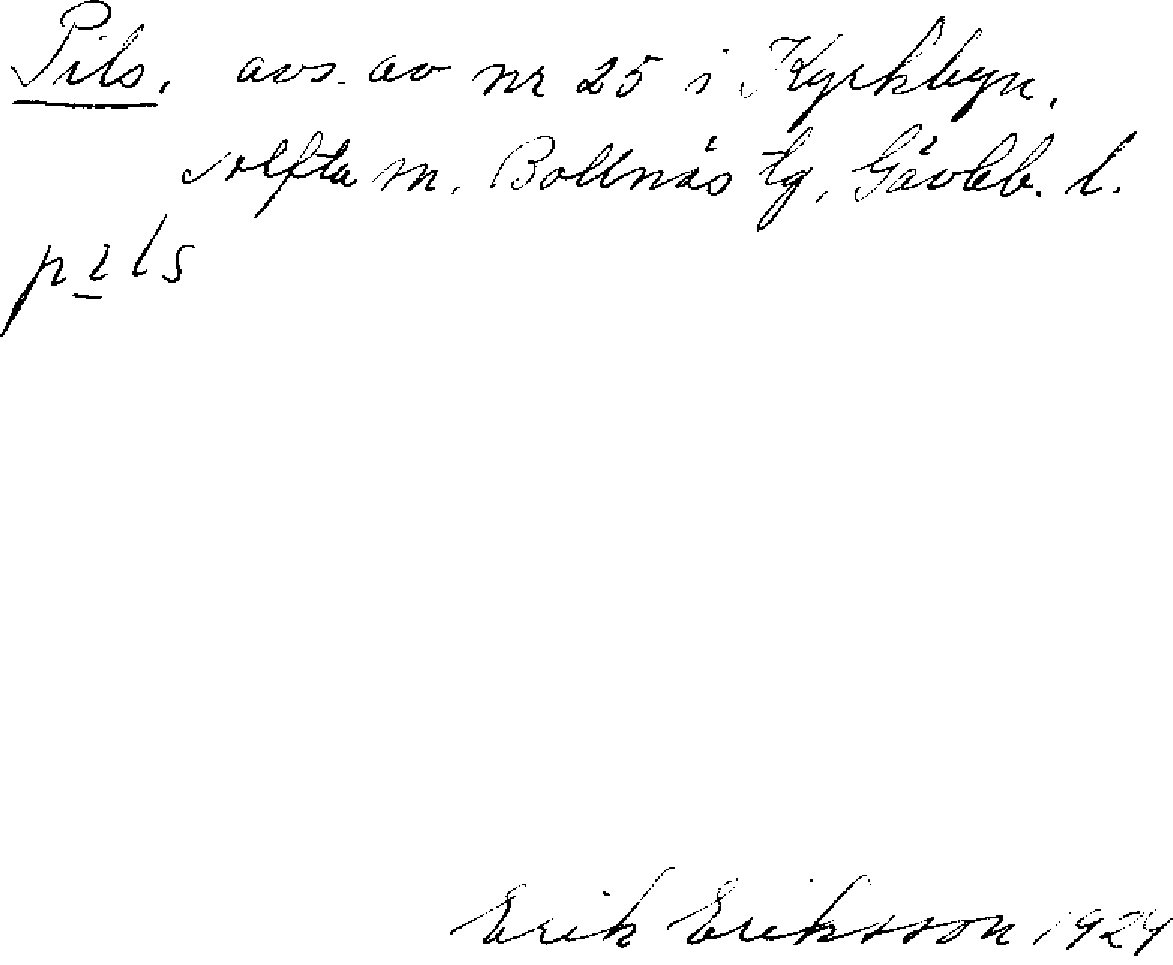 Pils, avs. av nr 25 i Kyrkbyn,
Alfta sn, Bollnäs tg, Gävleb. l.
pils
Erik Eriksson 1924